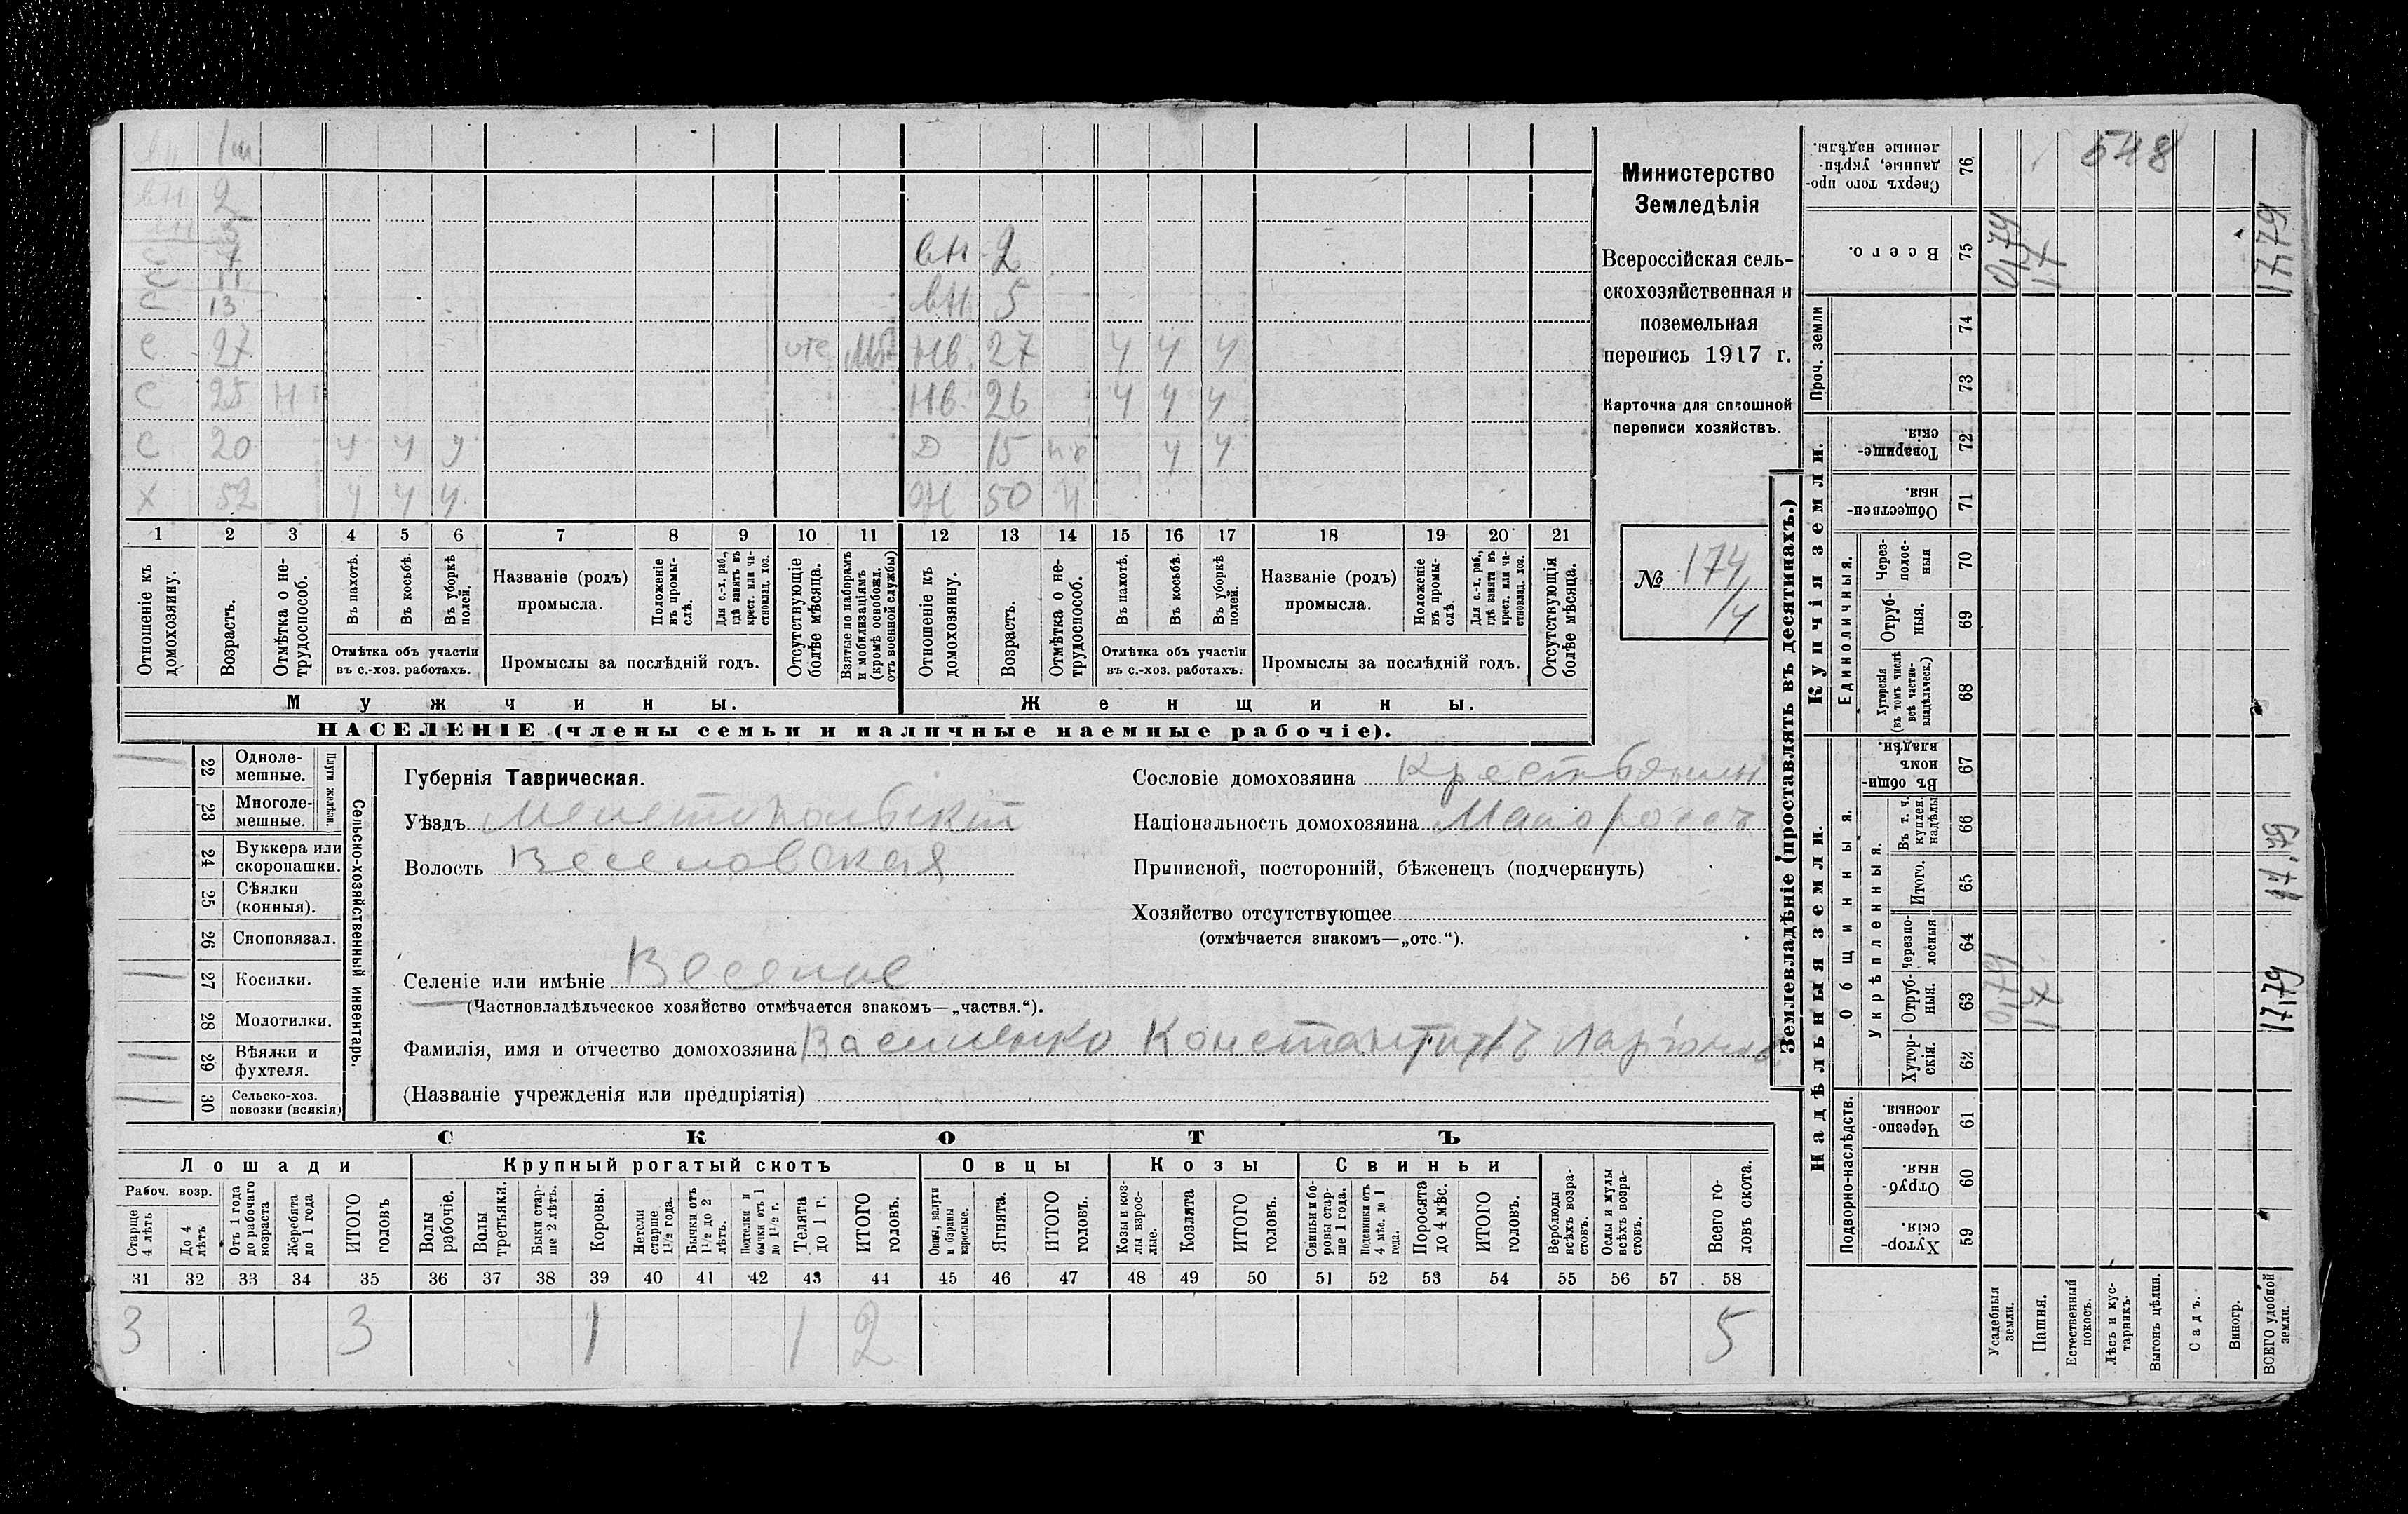 вн 1 м
вн 2
вн 3
С 7
С 11
С 13
вн 2
вн 5
С 27 отс Мб Нв. 27 ч ч ч
С 25 Н Нв. 26 ч ч ч
С 20 ч ч ч Д 15 ч ч
Х 52 ч ч ч Ж 50 Н
1 2 3 4 5 6 7 8 9 10 11 12 13 14 15 16 17 18 19 20 21
Отношеніе къ домохозяину.
Возрастъ.
Отмѣтка о не-трудоспособ.
Въ пахотѣ.
Въ косьбѣ.
Въ уборкѣ полей.
Отмѣтка объ участіи
въ с.-хоз. работахъ.
Названіе (родъ)
промысла.
Положеніе въ промы-слѣ.
Для с.-х. раб., гдѣ занятъ въ крест. или ча-стновлад. хоз.
Промыслы за послѣдній годъ.
Отсутствующіе болѣе мѣсяца.
Взятые по наборамъ и мобилизаціямъ (кромѣ освобожд. отъ военной службы)
Отношеніе къ домохозяину.
Возрастъ.
Отмѣтка о не-трудоспособ.
Въ пахотѣ.
Въ косьбѣ.
Въ уборкѣ полей.
Отмѣтка объ участіи
въ с.-хоз. работахъ.
Названіе (родъ)
промысла.
Положеніе въ промы-слѣ.
Для с.-х. раб., гдѣ занята въ крест. или ча-стновлад. хоз.
Промыслы за послѣдній годъ.
Отсутствующія болѣе мѣсяца.
Мужчины. Женщины.
НАСЕЛЕНІЕ (члены семьи и наличные наемные рабочіе).
Министерство
Земледѣлія
Всероссійская сель-
скохозяйственная и
поземельная
перепись 1917 г.
Карточка для сплошной
переписи хозяйствъ.
№ 174/4
22 Одноле-мешные.
23 Многоле-мешные.
Плуги желѣзн.
24 Буккера или скоропашки.
25 Сѣялки (конныя).
26 Сноповязал.
27 Косилки.
28 Молотилки.
29 Вѣялки и фухтеля.
30 Сельско-хоз. повозки (всякія)
Сельско-хозяйственный инвентарь.
Губернія Таврическая.
Уѣздъ Мелетипольскій
Волость Веселовская
Селеніе или имѣніе Веселое
(Частновладѣльческое хозяйство отмѣчается знакомъ—„частвл.“).
Фамилія, имя и отчество домохозяина Василенко Константинъ Ларіонов
(Названіе учрежденія или предпріятія)
Сословіе домохозяина Крестьянин
Національность домохозяина Малороссъ
Приписной, посторонній, бѣженецъ (подчеркнуть)
Хозяйство отсутствующее
(отмѣчается знакомъ—„отс.“).
СКОТЪ
Лошади Крупный рогатый скотъ Овцы Козы Свиньи
Рабоч. возр.
Старше 4 лѣтъ
До 4 лѣтъ
Отъ 1 года до рабочаго возраста
Жеребята до 1 года
ИТОГО головъ
Волы рабочіе.
Волы третьяки.
Быки стар-ше 2 лѣтъ.
Коровы.
Нетели старше 1½ года.
Бычки отъ 1½ до 2 лѣтъ.
Подтелки и бычки отъ 1 до 1½ г.
Телята до 1 г.
ИТОГО головъ.
Овцы, валухи и бараны взрослые.
Ягнята.
ИТОГО головъ.
Козы и коз-лы взрос-лые.
Козлята
ИТОГО головъ.
Свиньи и бо-ровы стар-ше 1 года.
Подсвинки отъ 4 мѣс. до 1 года.
Поросята до 4 мѣс.
ИТОГО головъ.
Верблюды всѣхъ возра-стовъ.
Ослы и мулы всѣхъ возра-стовъ.
Всего го-ловъ скота.
31 32 33 34 35 36 37 38 39 40 41 42 43 44 45 46 47 48 49 50 51 52 53 54 55 56 57 58
3 3 1 1 2 5
Землевладѣніе (проставлять въ десятинахъ.)
Надѣльныя земли. Купчія земли. Проч. земли
Подворно-наслѣдств.
Общинныя.
Укрѣпленныя.
Единоличныя.
59 Хутор-скія.
60 Отруб-ныя.
61 Черезпо-лосныя.
62 Хутор-скія.
63 Отруб-ныя. 0,79 17
64 Черезпо-лосныя
65 Итого.
66 Въ т. ч. куплен. надѣлы
67 Въ общин-номъ владѣн.
68 Хуторскія (въ томъ числѣ всѣ частно-владѣльческ.)
69 Отруб-ныя.
70 Через-полос-ныя
71 Обществен-ныя.
72 Товарище-скія.
73
74
75 Всего. 0,79 17 17,79
76 Сверхъ того про-данные, укрѣп-ленные надѣлы.
548
17,79
17,79
Усадебныя земли.
Пашня.
Естественный покосъ.
Лѣсъ и кус-тарникъ.
Выгонъ цѣлин.
Садъ.
Виногр.
ВСЕГО удобной земли.